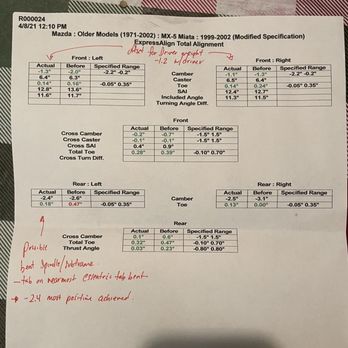 R000024
4/8/21 12:10 PM
Mazda : Older Models (1971-2002) : MX-5 Miata : 1999-2002 (Modified Specification)
ExpressAlign Total Alignment
for Driver weight
-1.2 w/driver
Front : Left Front : Right
Actual Before Specified Range Actual Before Specified Range
-1.3° -2.0° -2.2° -0.2° Camber -1.1° -1.3° -2.2° -0.2°
6.4° 6.3° Caster 6.5° 6.4°
0.14° 0.16° -0.05° 0.35° Toe 0.14° 0.24° -0.05° 0.35°
12.8° 13.6° SAI 12.4° 12.7°
11.6° 11.7° Included Angle 11.3° 11.5°
Turning Angle Diff.
Front
Actual Before Specified Range
Cross Camber -0.2° -0.7° -1.5° 1.5°
Cross Caster -0.1° -0.1° -1.5° 1.5°
Cross SAI 0.4° 0.9°
Total Toe 0.28° 0.39° -0.10° 0.70°
Cross Turn Diff.
Rear : Left Rear : Right
Actual Before Specified Range Actual Before Specified Range
-2.4° -2.6° Camber -2.5° -3.1°
0.18° 0.47° -0.05° 0.35° Toe 0.13° 0.00° -0.05° 0.35°
Rear
Actual Before Specified Range
Cross Camber 0.1° 0.6° -1.5° 1.5°
Total Toe 0.32° 0.47° -0.10° 0.70°
Thrust Angle 0.03° 0.23° -0.80° 0.80°
possible
bent spindle/subframe
- tab on rearmost eccentric tab bent
→ -2.4 most positive achieved.